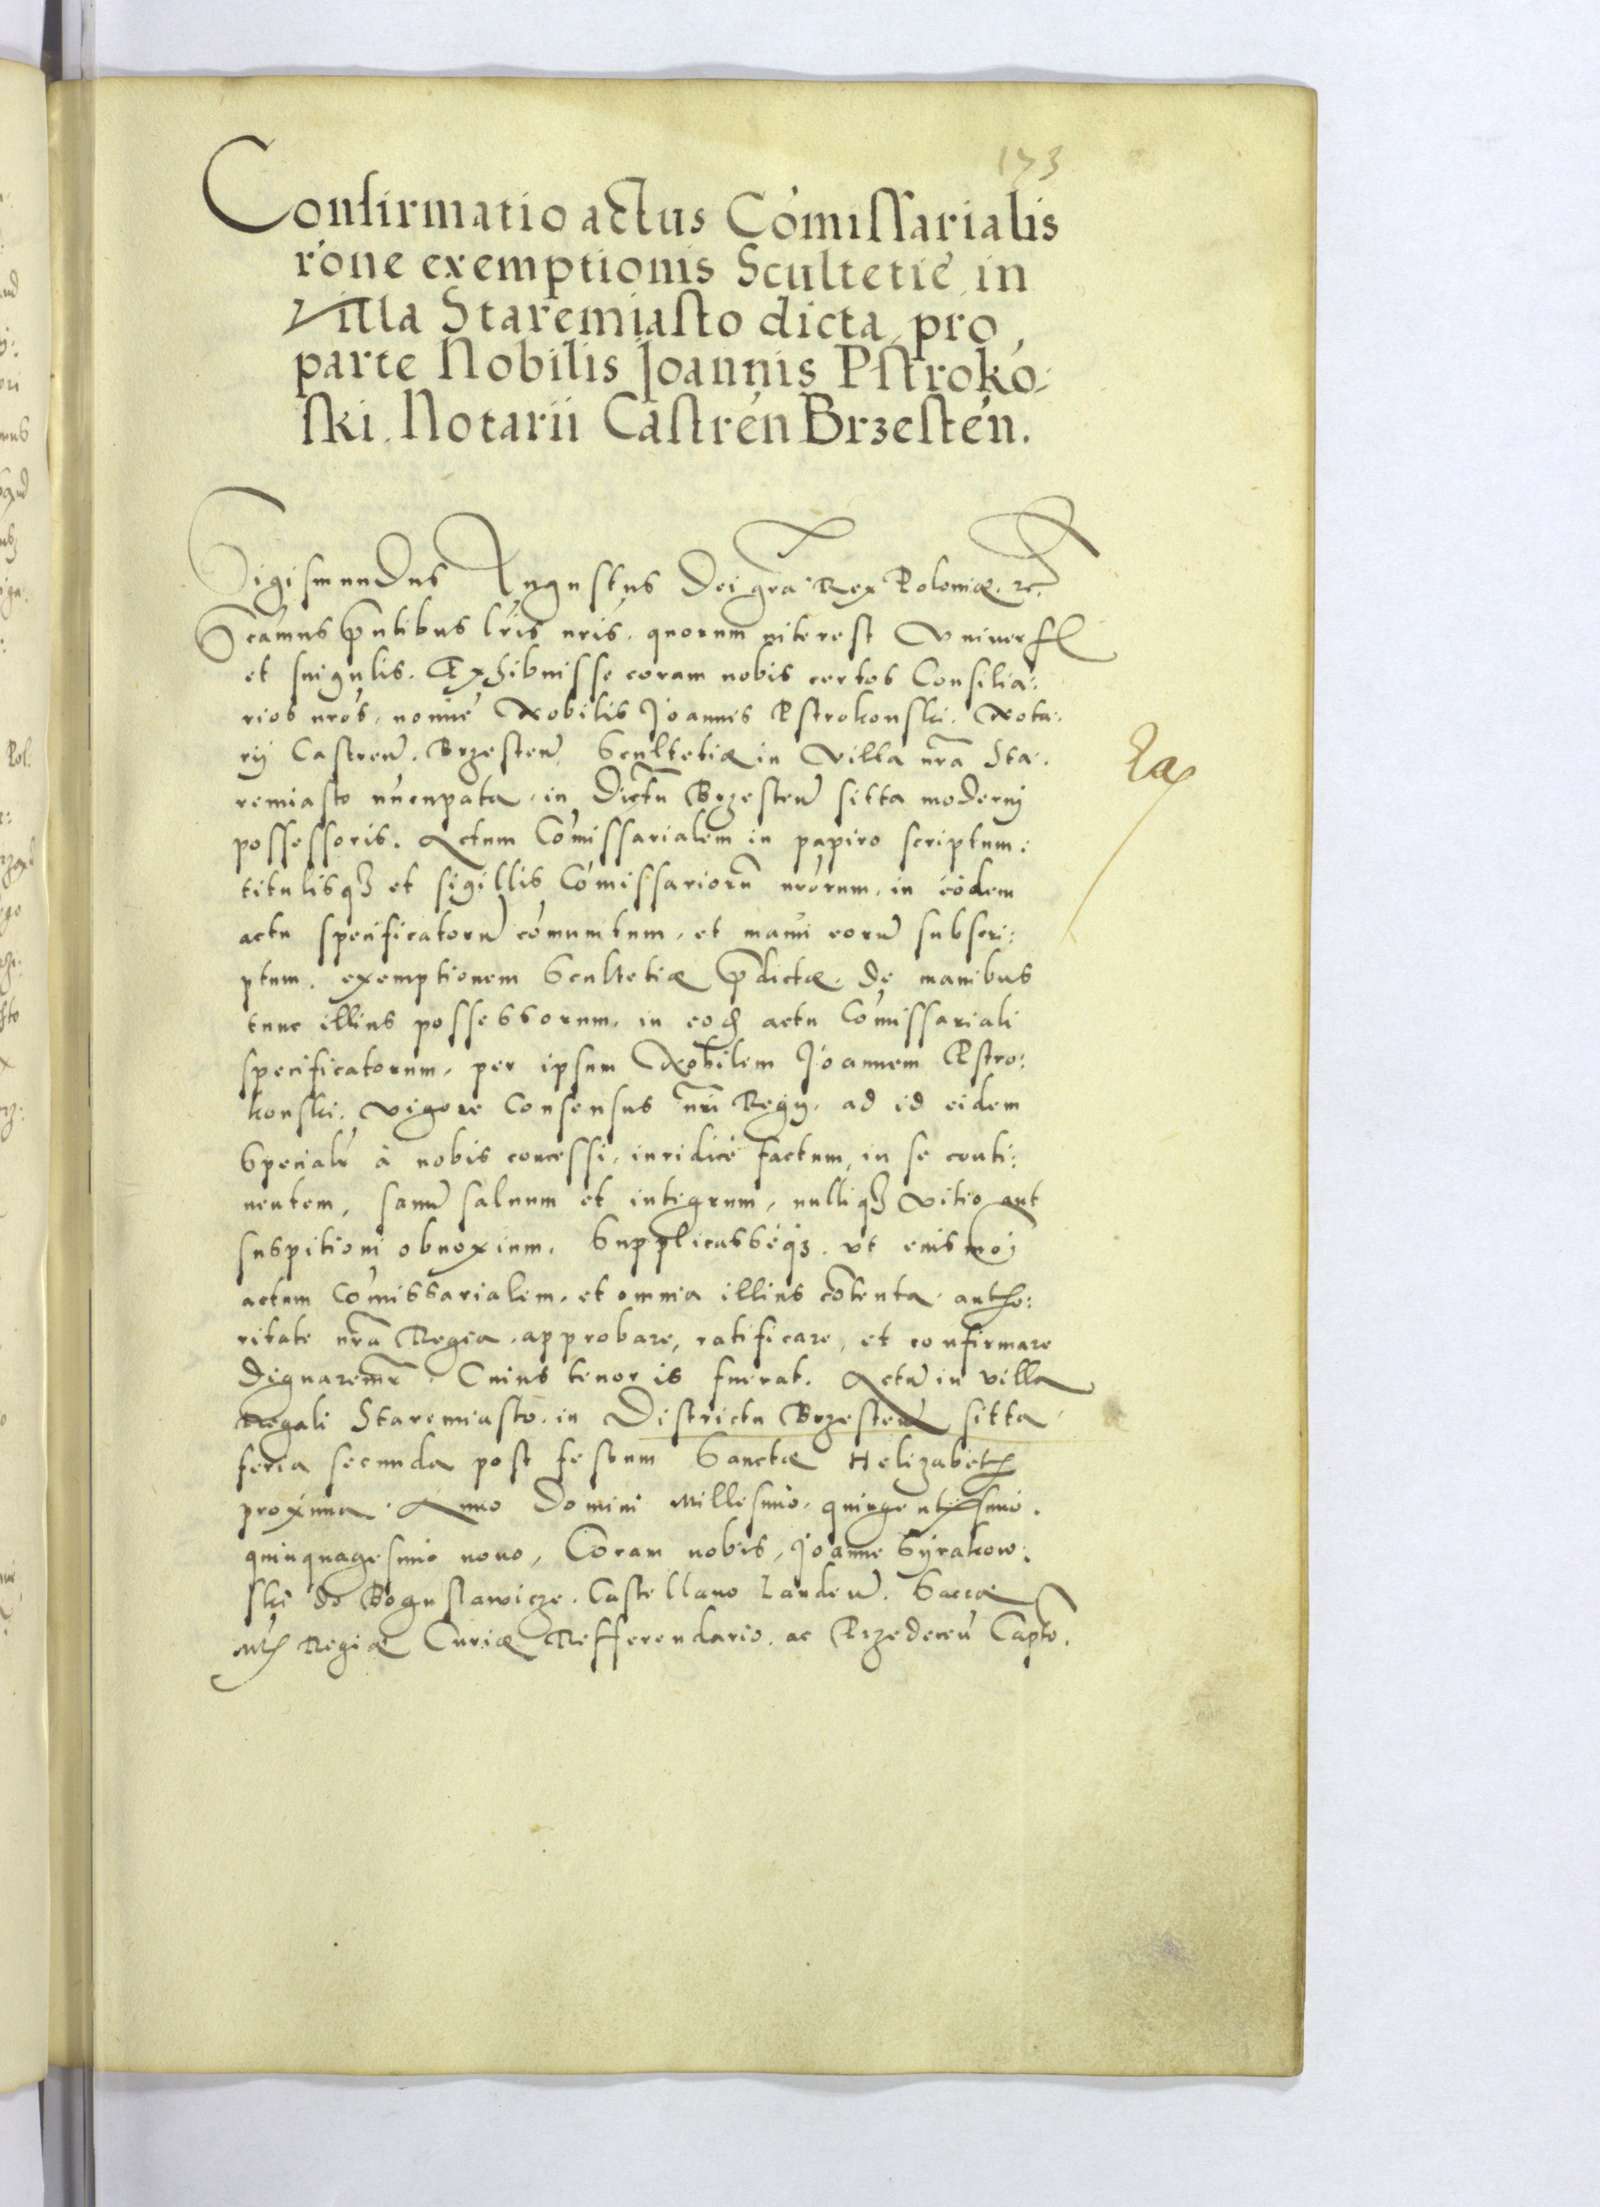 173
Confirmatio actus Comissarialis
rone exemptionis Scultetie in
Villa Staremiasto dicta, pro
parte Nobilis Joannis Pstroko-
ski. Notarii Castren Brzesten.
Sigismundus Augustus Dei gra Rex Poloniæ. etc.
Scamus pntibus lris nris. quorum interest Universis
et singulis. Exhibuisse coram nobis certos Consilia:
rios nros, nomine Nobilis Joannis Pstrokonski. Nota:
rij Castren. Brzesten. Scultetiæ in Villa nra Sta:
remiasto nuncupata, in Dictu Brzesten sitta moderni
possessoris. Actum Comissarialem in papiro scriptum.
titulisq3 et sigillis Comissarioru nrorum, in eodem
actu specificatoru comunitum, et manu eoru subscri:
ptum. exemptionem Scultetiæ pdictæ. de manibus
tunc illius possessorum. in eod actu Comissariali
specificatorum, per ipsum Nobilem Joannem Pstro:
konski. vigore Consensus nri Regij. ad id eidem
Specialr à nobis concessi, iuridice factum, in se conti:
nentem, sanu saluum et integrum, nulliq3 vitio aut
suspitioni obnoxium. Supplicasseq3. ut eiusmoi
actum Comissarialem. et omnia illius contenta. autho:
ritate nra Regia. approbare, ratificare, et confirmare
dignaremr. Cuius tenor is fuerat. Actu in villa
Regali Staremiasto. in Districtu Brzesten sitta
feria secunda post festum Sanctæ Helizabeth
proxima. Anno Domini Millesimo. quingentesimo.
quinquagesimo nono, Coram nobis, Joanne Syrakow:
ski de Boguslawicze. Castellano Landen. Sacræ
Mtis Regiæ Curiæ Refferendario. ac Przedecen Capto.